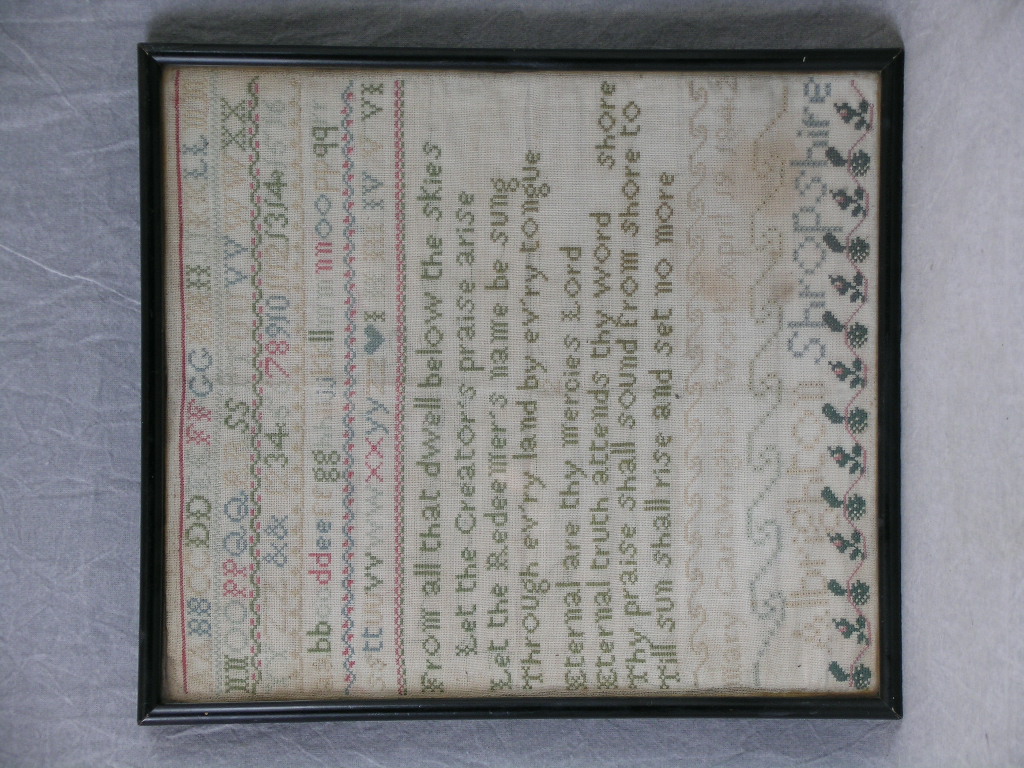 BB CC DD FF GG HH LL
M OO PP QQ SS VV W XX
Y Z && 1 2 3 4 5 6 7 8 9 10 11 12 13 14 15 16
bb dd ee f gg hh ii ll m nn oo pp qq rr
tt vv w w xx yy I IV V VI
From all that dwell below the skies
Let the Creator's praise arise
Let the Redeemer's name be sung
Through ev'ry land by ev'ry tongue
Eternal are thy mercies Lord
Eternal truth attends thy word
Thy praise shall sound from shore to shore
Till sun shall rise and set no more
Mary Cartwright's Work April 19 1842
Albrighton Shropshire